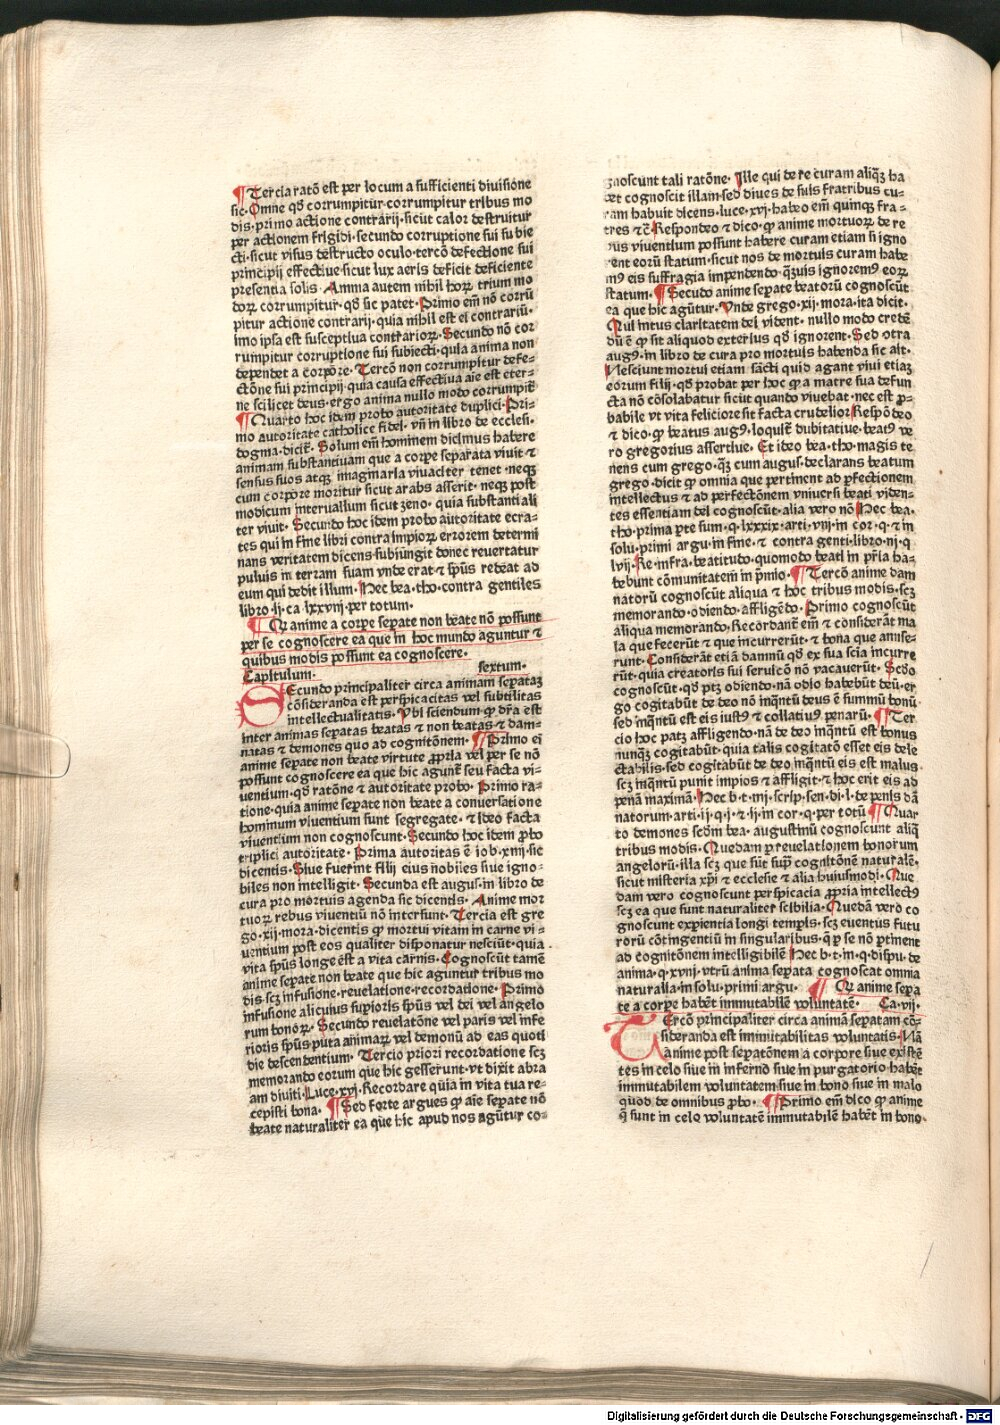 ¶Tercia ratō est per locum a sufficienti diuisiōne
sic. Omne qđ corrumpitur corrumpitur tribus mo
dis. primo actione contrarij. sicut calor destruitur
per actionem frigidi. secundo corruptione sui subie
cti. sicut visus destructo oculo. tercō defectione sui
principij effectiue sicut lux aeris deficit deficiente
presentia solis. Anima autem nihil hoꝝ trium mo
doꝝ corrumpitur. qđ sic patet. Primo em̄ nō corrū
pitur actiōne contrarij. quia nihil est ei contrariū.
imo ipsa est susceptiua contrarioꝝ. Secundo nō cor
rumpitur corruptiōne sui subiecti. quia anima non
dependet a corpōre. Tercō non corrumpitur defe-
ctōne sui principij. quia causa effectiua aīe est eter-
ne scilicet deus. ergo anima nullo modo corrumpit̄
¶Quarto hoc idem probo autoritate duplici. Pri-
mo autoritate catholice fidei. vn̄ in libro de ecclesi.
dogma. dicit̄. Solum em̄ hominem dicimus habere
animam substantiuam que a corpe separata viuit ⁊
sensus suos atqꝫ imaginaria viuaciter tenet. neqꝫ
cum corpore moritur sicut arabs asserit. neqꝫ post
modicum interuallum sicut zeno. quia substanti ali
ter viuit. Secundo hoc idem probo autoritate ecra-
tes qui in fine libri contra impioꝝ errorem determi
nans veritatem dicens. subiūngit donec reuertatur
puluis in terram suam vnde erat ⁊ sp̄us redeat ad
eum qui dedit illum. Hec bea. tho. contra gentiles
libro. ij. ca. lxxvnj. per totum.
¶ Qꝫ anime a corpe sepate non beate nō possunt
per se cognoscere ea que in hoc mundo aguntur ⁊
quibus modis possunt ea cognoscere.
Capitulum. sextum.
SEcundo principaliter circa animam sepataꝫ
cōsideranda est perspicacitas vel subtilitas
intellectualitatis. Vbi sciendum ꝙ dr̄a est
inter animas sepatas beatas ⁊ non beatas ⁊ dam-
natas ⁊ demones quo ad cognitōnem. ¶Primo ei
anime sepate non beate virtute ꝓpria vel per se nō
possunt cognoscere ea que hic agunt̄ seu facta vi-
uentium. qđ ratōne ⁊ autoritate probo. Primo ra-
tione. quia anime sepate non beate a conuersatione
hominum viuentium sunt segregate. ⁊ ideo facta
viuentium non cognoscunt. Secundo hoc idem ꝓbo
triplici autoritate. Prima autoritas ē iob. xnij. sic
dicentis. Siue fuerint filij eius nobiles siue igno-
biles non intelligit. Secunda est augus. in libro de
cura pro mortuis agenda sic dicentis. Anime mor
tuoꝝ rebus viuentiū nō intersunt. Tercia est gre
go. xij. mora. dicentis ꝙ mortui vitam in carne vi-
uentium post eos qualiter disponatur nesciūt. quia
vita sp̄us longe ēst a vita carnis. Cognoscūt tamē
anime sepate non beate que hic aguntur tribus mo
dis. scꝫ infusiōne. reuelatione. recordatione. Primo
infusiōne alicuius supioris sp̄us vel dei vel angelo
rum bonoꝝ. Secundo reuelatōne vel paris vel infe
rioris sp̄us puta animaꝝ vel demonū ad eas quoti
die descendentium. Tercio priori recordatiōne scꝫ
memorando eorum que hic gesserunt. vt dixit abra
am diuiti. Luce. xvj. Recordare quia in vita tua re-
cepisti bona. ¶Sed forte argues ꝙ aīe sepate nō
beate naturaliter ea que hic apud nos agūtur co-
gnoscunt tali ratōne. Ille qui de re curam aliqꝫ ha
bet cognoscit illam. sed diues de suis fratribus cu-
ram habuit dicens. luce. xvj. habeo em̄ quinqꝫ fra-
tres ⁊c̄. Respondeo ⁊ dico. ꝙ anime mortuoꝝ de re
bus viuentium possunt habere curam etiam si igno
rent eorū statum. sicut nos de mortuis curam habe
mꝰ eis suffragia impendendo. qꝫuis ignoremꝰ eoꝝ
statum. ¶Secūdo anime sepate beatorū cognoscūt
ea que hic agūtur. Vnde grego. xij. mora. ita dicit.
Qui intus claritatem dei vident. nullo modo credē
dū ē ꝙ sit aliquod exterius qđ ignorent. Sed otra
augꝰ. in libro de cura pro mortuis habenda sic ait.
Nesciunt mortui etiam sācti quid agant viui etiaꝫ
eorum filij. qđ probat per hoc ꝙ a matre sua defun
cta nō cōsolabatur sicut quando viuebat. nec est ꝓ-
babile vt vita feliciore sit facta crudelior. Respōdeo
⁊ dico. ꝙ beatus augꝰ. loquit̄ dubitatiue. beatꝰ ve
ro gregorius assertiue. Et ideo bea. tho. magis te
nens cum grego. qꝫ cum augus. declarans beatum
grego. dicit ꝙ omnia que pertinent ad ꝑfectionem
intellectus ⁊ ad perfectōnem vniuersi beati viden-
tes essentiam dei cognoscūt. alia vero nō. Hec bea.
tho. prima ꝑte sum. q. lxxxix. arti. vnj. in cor. q. ⁊ in
solu. primi argu. in fine. ⁊ contra genti. libro. nj. q
lvij. Re. infra. beatitudo. quomodo beati in pr̄ia ha-
bebunt cōmunitatem in p̄mio. ¶Tercō anime dam
natorū cognoscūt aliqua ⁊ hoc tribus modis. scꝫ
memorando. odiendo. affligēdo. Primo cognoscūt
aliqua memorando. Recordant̄ em̄ ⁊ considerāt ma
la que fecerūt ⁊ que incurrerūt. ⁊ bona que amise-
runt. Considerāt etiā damnū qđ ex sua scia incurre
rūt. quia creatoris sui seruicō nō vacauerūt. Scđo
cognoscūt. qđ ptꝫ odiendo. nā odio habebūt deū. er
go cogitabūt de deo nō inqͣntū deus ē summū bonū.
sed inqͣntū est eis iustꝰ ⁊ collatiuꝰ penarū. ¶Ter
cio hoc patꝫ affligendo. nā de deo inqͣntū est bonus
nunqꝫ cogitabūt. quia talis cogitatō esset eis dele
ctabilis. sed cogitabūt de deo inqͣntū eis est malus.
scꝫ inqͣntū punit impios ⁊ affligit. ⁊ hoc erit eis ad
penā maximā. Hec b. t. nij. scrip. sen. di. l. de penis dā
natorum. arti. ij. q. j. ⁊ ij. in cor. q. per totū ¶Quar
to demones scdm̄ bea. augustinū cognoscunt aliqͣ
tribus modis. Quedam ꝑ reuelationem bonorum
angelorū. illa scꝫ que sūt supͣ cognitōnē naturalē.
sicut misteria xp̄i ⁊ ecclesie ⁊ alia huiusmodi. Que
dam vero cognoscunt perspicacia ꝓpria intellectꝰ
scꝫ ea que sunt naturaliter scibilia. Quedā vero co
gnoscunt exꝑientia longi tempis. scꝫ euentus futu
rorū cōtingentiū in singularibus. qͥ ꝑ se nō ꝑtinent
ad cognitōnem intelligibilē Hec b. t. in. q. dispu. de
anima. q. xvnj. vtrū anima sepata cognoscat omnia
naturalia. in solu. primi argu. ¶ Qꝫ anime sepa
te a corpe habēt immutabilē voluntatē. Ca. vij.
TErcō principaliter circa animā sepatam cō-
sideranda est immutabilitas voluntatis. Nā
anime post sepatōnem a corpore siue existē
tes in celo siue in inferno siue in purgatorio habēt
immutabilem voluntatem siue in bono siue in malo
quod de omnibus ꝓbo. ¶Primo em̄ dico ꝙ anime
q̄ sunt in celo voluntatē immutabilē habēt in bono.
Digitalisierung gefördert durch die Deutsche Forschungsgemeinschaft - DFG